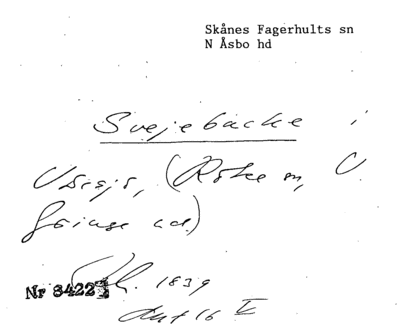 Skånes Fagerhults sn
N Åsbo hd
Svejebacke i
(Röke sn, V.
Göinge hd.)
Nr 8422 1839
Akt 16 V